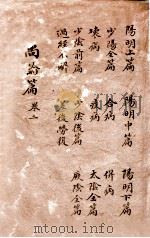 陽明上篇 陽明中篇 陽明下篇
少陽全篇 合病 併病
壞病 痰病 太陰全篇
少陰前篇 少陰後篇 厥陰全篇
過經不解 差後勞復
尚論篇 卷二